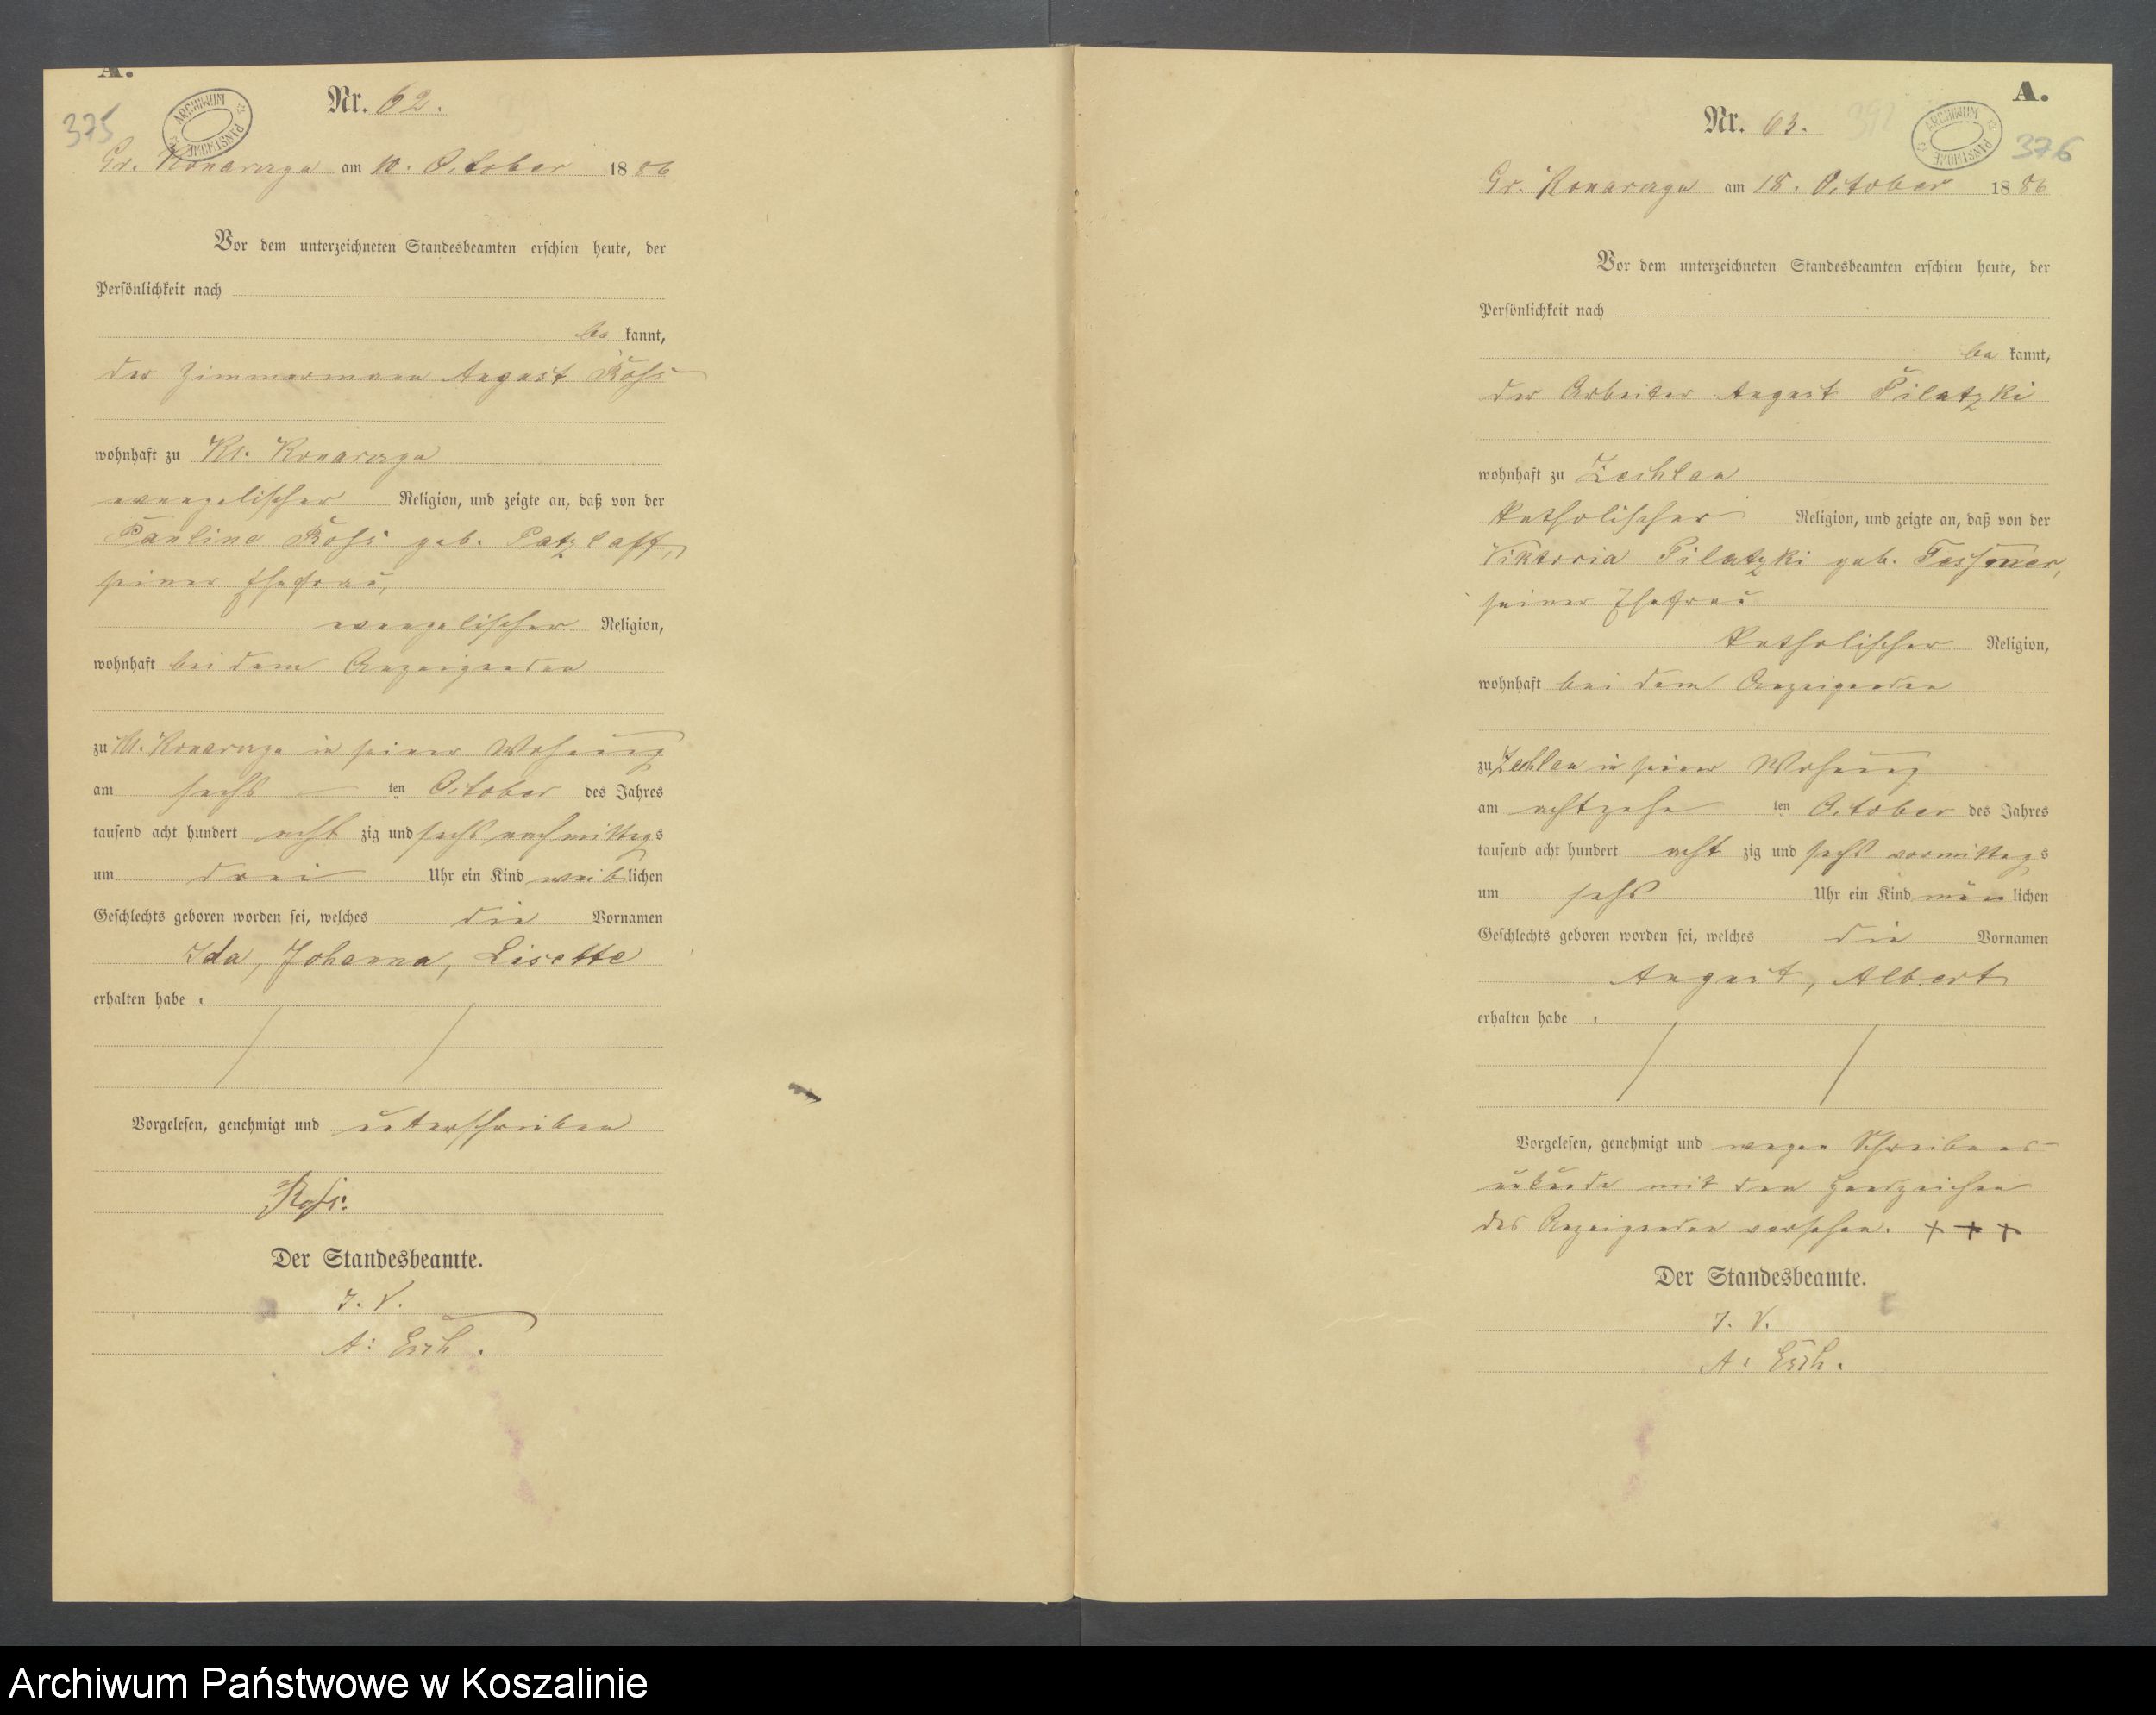 A.
375
ARCHIWUM PAŃSTWOWE
Nr. 62.
Gr. Konarzyn am 10. October 1886
Vor dem unterzeichneten Standesbeamten erschien heute, der
Persönlichkeit nach
be kannt,
der Zimmermann August Roß
wohnhaft zu Kl. Konarzyn
evangelischer Religion, und zeigte an, daß von der
Pauline Roß geb. Patzlaff,
seiner Ehefrau,
evangelischer Religion,
wohnhaft bei dem Anzeigenden
zu Kl. Konarzyn in seiner Wohnung
am sechs ten October des Jahres
tausend acht hundert acht zig und sechs nachmittags
um drei Uhr ein Kind weib lichen
Geschlechts geboren worden sei, welches die Vornamen
Ida, Johanna, Lisette
erhalten habe.
Vorgelesen, genehmigt und unterschrieben
Roß.
Der Standesbeamte.
I. V.
A:
A.
376
ARCHIWUM PAŃSTWOWE
Nr. 63.
Gr. Konarzyn am 18. October 1886
Vor dem unterzeichneten Standesbeamten erschien heute, der
Persönlichkeit nach
be kannt,
der Arbeiter August Pilatzki
wohnhaft zu Zechlau
katholischer Religion, und zeigte an, daß von der
Viktoria Pilatzki geb. Tessmer,
seiner Ehefrau
katholischer Religion,
wohnhaft bei dem Anzeigenden
zu Zechlau in seiner Wohnung
am achtzehn ten October des Jahres
tausend acht hundert acht zig und sechs vormittags
um sechs Uhr ein Kind män lichen
Geschlechts geboren worden sei, welches die Vornamen
August, Albert
erhalten habe.
Vorgelesen, genehmigt und wegen Schreibens
unkunde mit den Handzeichen
des Anzeigenden versehen. + + +
Der Standesbeamte.
I. V.
A:
Archiwum Państwowe w Koszalinie